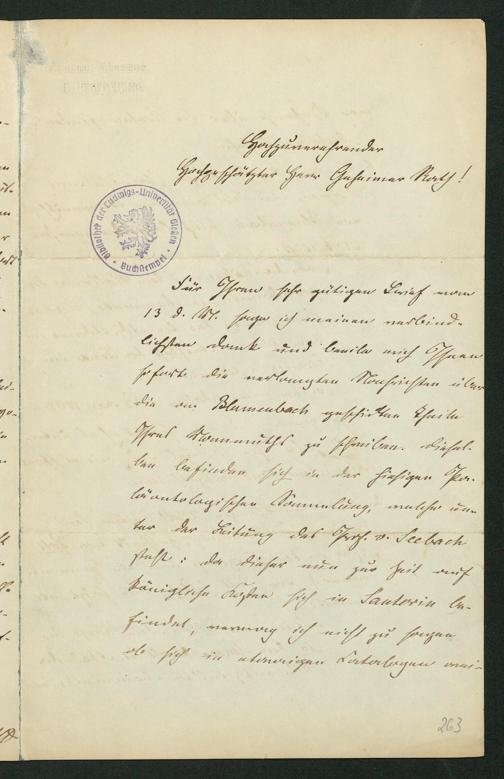 Hochzuverehrender
Hochgeschätzter Herr Geheimer Rath!
Bibliothek der Ludwigs-Universität Gießen
Buchstempel
Für Ihren sehr gütigen Brief vom
13 d. M. sage ich meinen verbind-
lichsten Dank und beeile mich Ihnen
sofort die verlangten Nachrichten über
die an Blumenbach geschickten Theile
Ihres Mammuths zu schreiben. Diesel-
ben befinden sich in der hiesigen Pa-
läontologischen Sammlung, welche un-
ter der Leitung des Prof. v. Seebach
steht: da dieser nun zur Zeit auf
Königliche Kosten sich in Santorin be-
findet, vermag ich nicht zu sagen
ob sich in etwaigen Catalogen
263